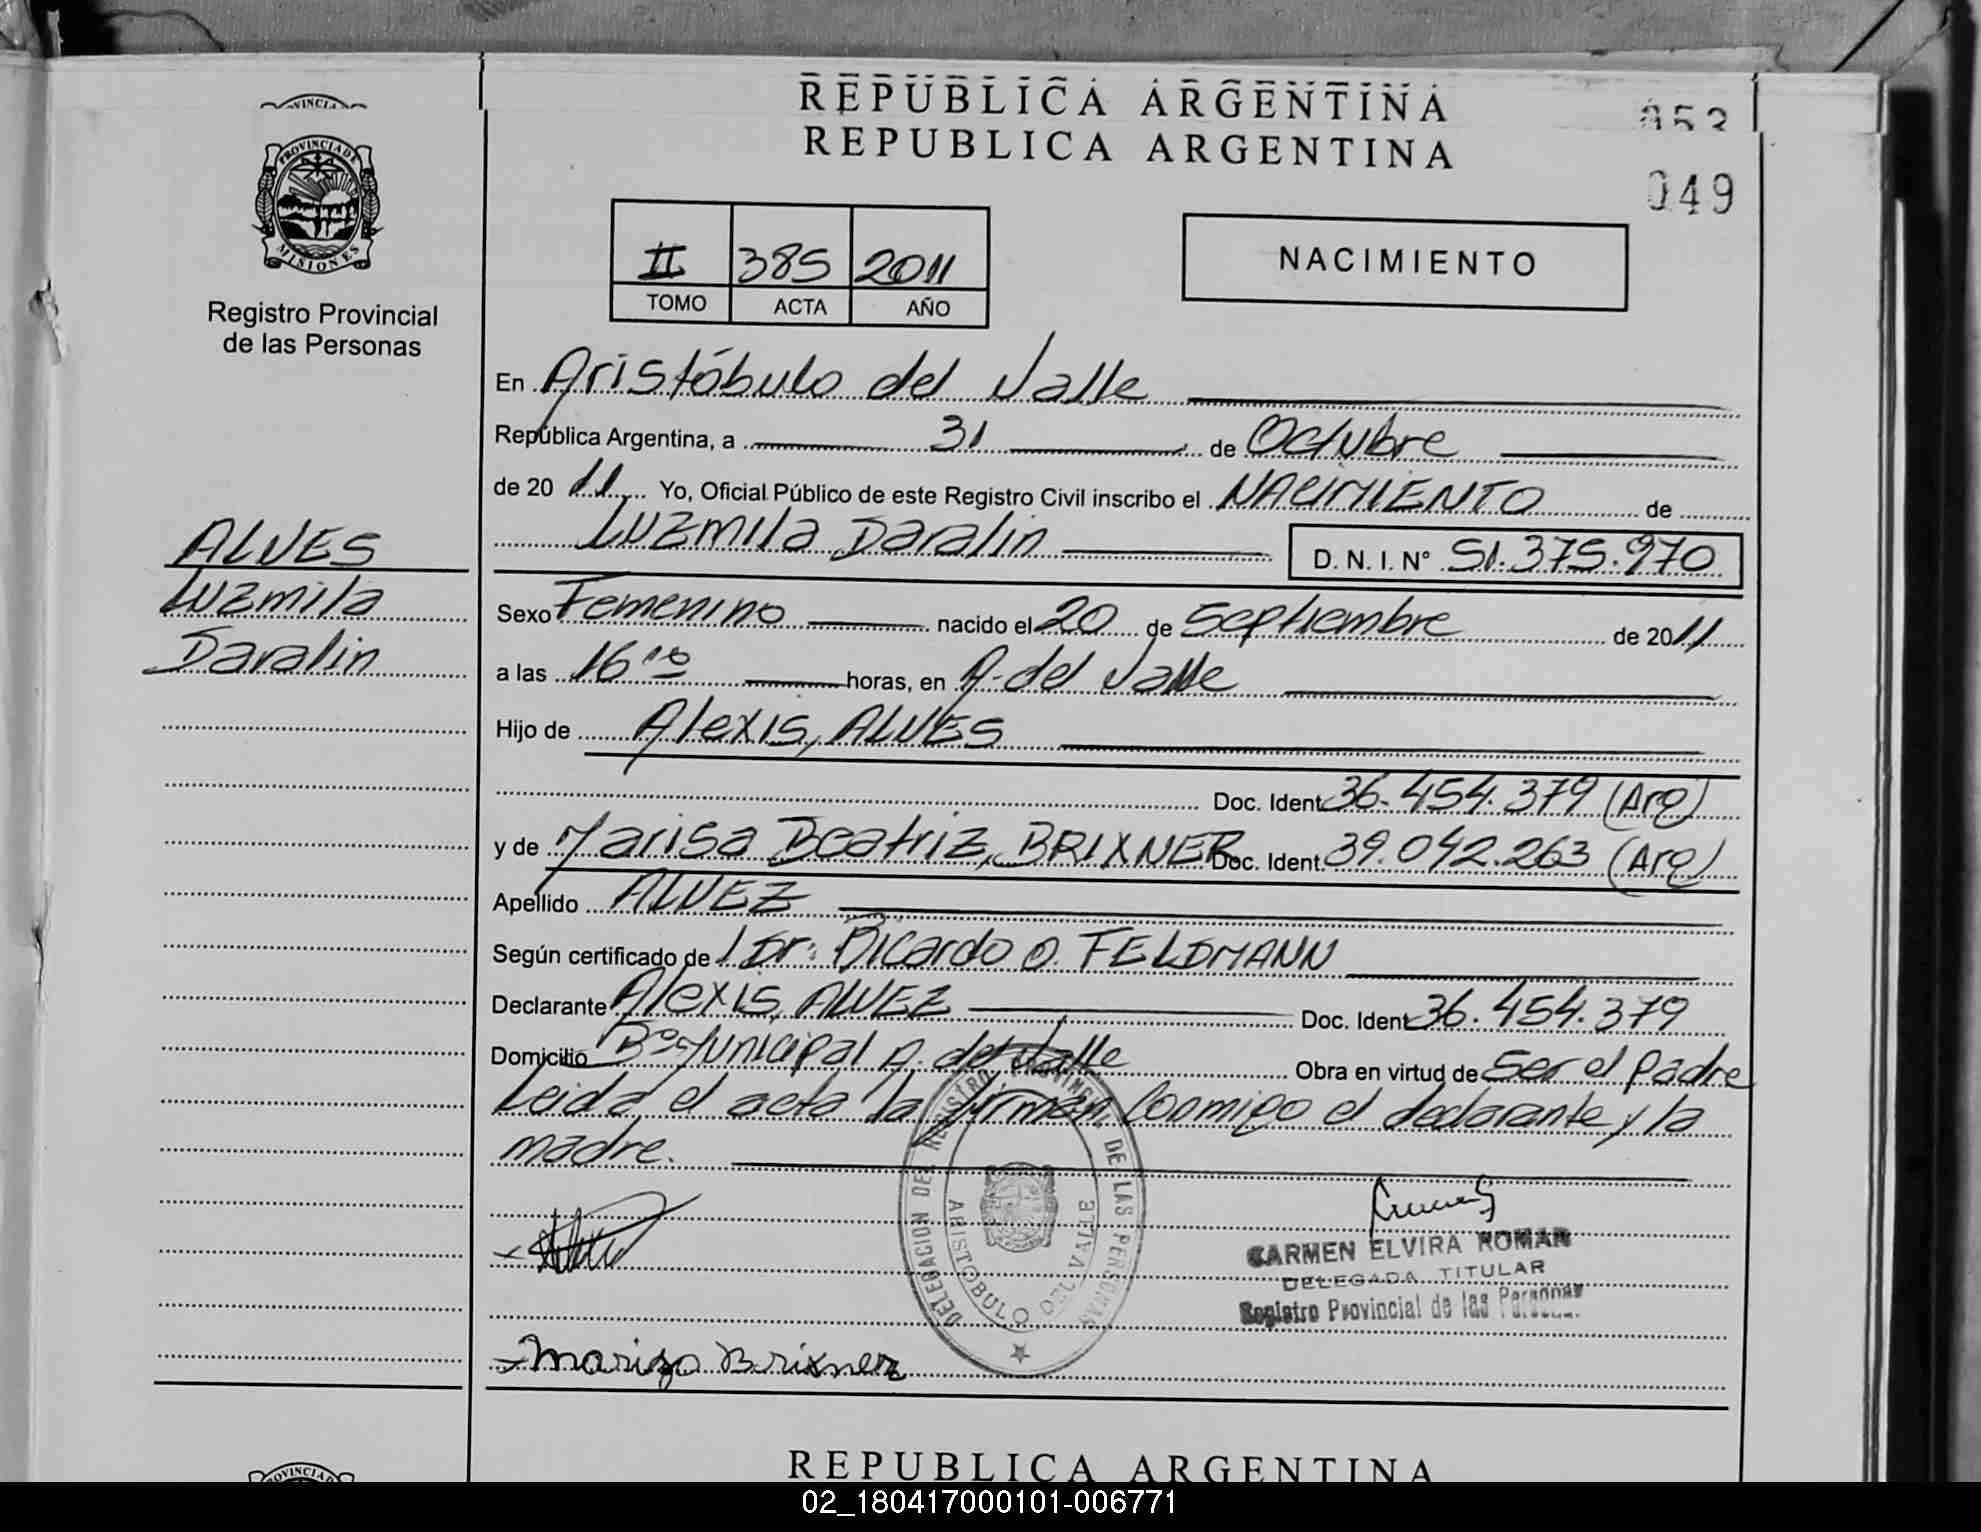 REPUBLICA ARGENTINA
REPUBLICA ARGENTINA
053
049
PROVINCIA DE
MISIONES
Registro Provincial
de las Personas
II 385 2011
TOMO ACTA AÑO
NACIMIENTO
En Aristóbulo del Valle
República Argentina, a 31 de Octubre
de 2011 Yo, Oficial Público de este Registro Civil inscribo el NACIMIENTO de
Luzmila Daralin D. N. I. N° 51.375.970
ALVES
Luzmila
Daralin
Sexo Femenino nacido el 20 de Septiembre de 2011
a las 16 10 horas, en A. del Valle
Hijo de Alexis, ALVES
Doc. Ident. 36.454.379 (Arg)
y de Marisa Beatriz, BRIXNER Doc. Ident. 39.042.263 (Arg)
Apellido ALVEZ
Según certificado de l Dr. Ricardo O. FELDMANN
Declarante Alexis, ALVEZ Doc. Ident. 36.454.379
Domicilio B° Municipal A. del Valle Obra en virtud de Ser el padre
Leida el acta la firman Conmigo el declarante y la
madre.
DELEGACION DEL REGISTRO PROVINCIAL DE LAS PERSONAS
ARISTOBULO DEL VALLE
CARMEN ELVIRA ROMAN
DELEGADA TITULAR
Registro Provincial de las Personas
Marisa Brixner
PROVINCIA DE
REPUBLICA ARGENTINA
02_180417000101-006771